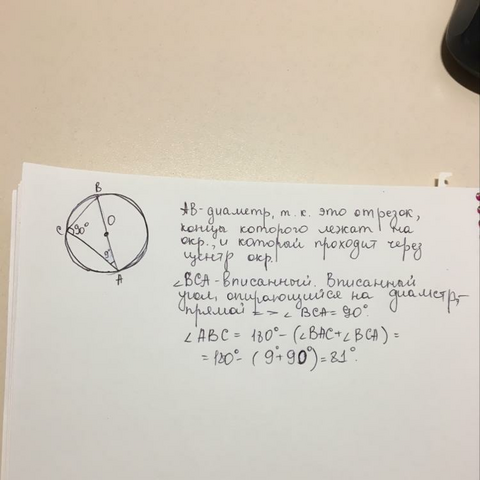 B
C 90° O
9°
A
AB-диаметр, т.к. это отрезок,
концы которого лежат на
окр., и который проходит через
центр окр.
∠BCA-вписанный. Вписанный
угол, опирающийся на диаметр,-
прямой => ∠BCA=90°.
∠ABC = 180°-(∠BAC+∠BCA)=
=180°-(9°+90°)=81°.